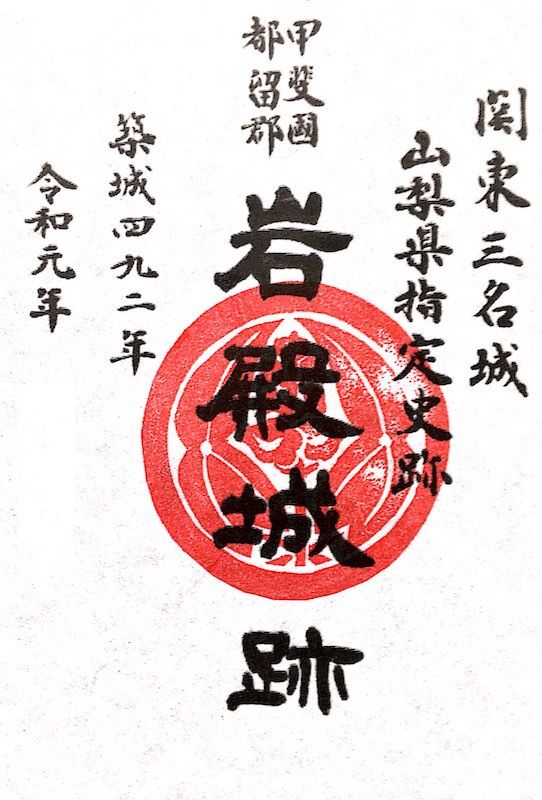 関東三名城
山梨県指定史跡
甲斐國
都留郡
岩殿城跡
築城四九二年
令和元年